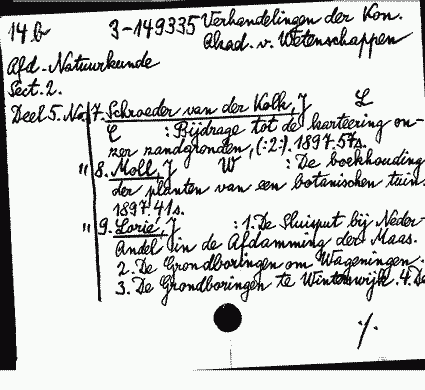 14 b 3-149335 Verhandelingen der Kon.
Akad. v. Wetenschappen
Afd. Natuurkunde
Sect. 2.
Deel 5. No. 7. Schroeder van der Kolk, J L
C : Bijdrage tot de karteering on-
zer zandgronden, (:2:). 1897. 57s.
" 8. Moll, J W : De boekhouding
der planten van een botanischen tuin.
1897. 41s.
" 9. Lorié, J : 1. De Sluisput bij Neder-
Andel in de Afdamming der Maas.
2. De Grondboringen om Wageningen.
3. De Grondboringen te Winterswijk. 4. De